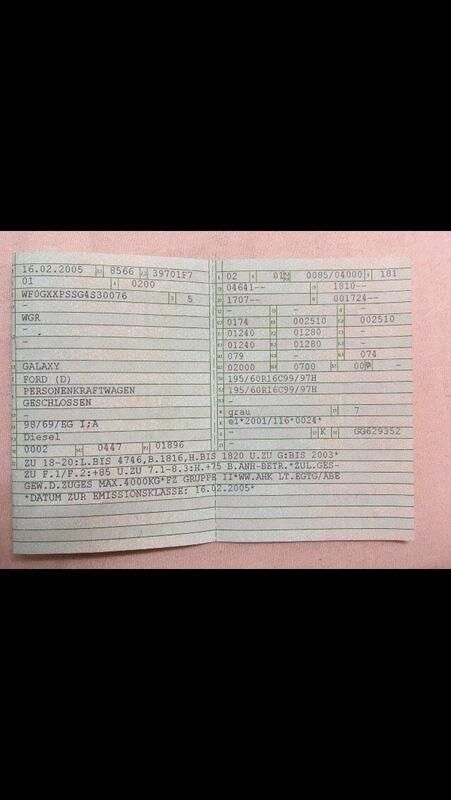 16.02.2005 8566 39701F7
01 0200
WF0GXXPSSG4S30076 5
-
WGR
-
-
GALAXY
FORD (D)
PERSONENKRAFTWAGEN
GESCHLOSSEN
-
98/69/EG I;A
Diesel
0002 0447 01896
02 01 0085/04000 181
04641-- 1810--
1707-- 001724--
- - -
0174 002510 002510
01240 01280 -
01240 01280 -
079 - 074
02000 0700 -
195/60R16C99/97H
195/60R16C99/97H
-
grau 7
e1*2001/116*0024*
- K GG629352
ZU 18-20:L.BIS 4746,B.1816,H.BIS 1820 U.ZU G:BIS 2003*
ZU F.1/F.2:+85 U.ZU 7.1-8.3:H.+75 B.ANH-BETR.*ZUL.GES-
GEW.D.ZUGES MAX.4000KG*FZ GRUPPE II*WW.AHK LT.EGTG/ABE
*DATUM ZUR EMISSIONSKLASSE: 16.02.2005*